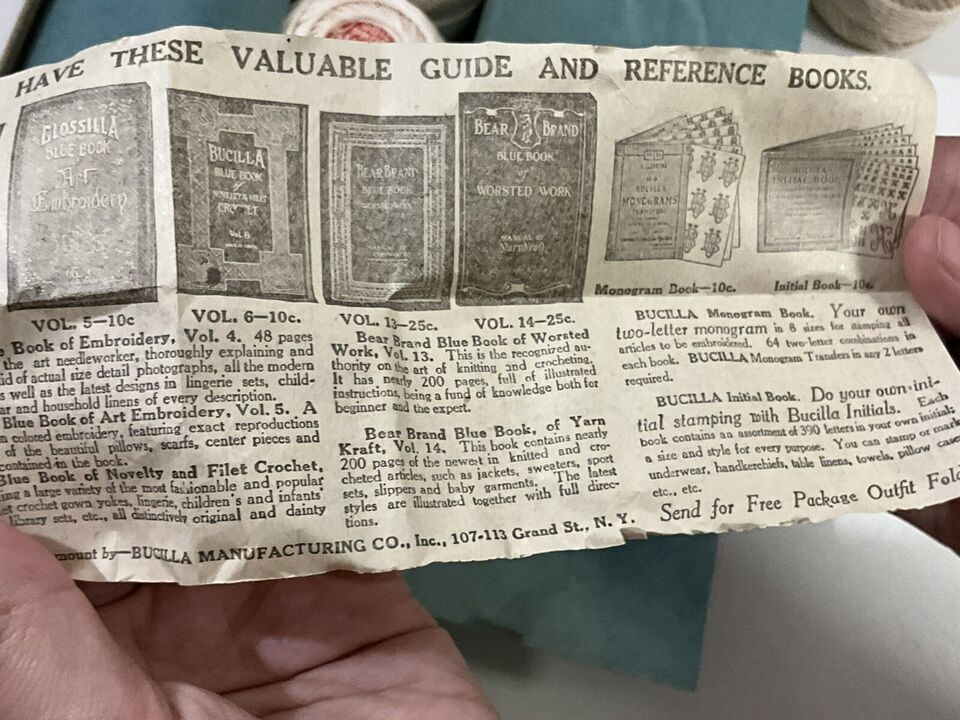 HAVE THESE VALUABLE GUIDE AND REFERENCE BOOKS.
GLOSSILLA
BLUE BOOK
Art
Embroidery
BUCILLA
BLUE BOOK
of
NOVELTY & FILET
CROCHET
Vol. 6
BEAR BRAND
BLUE BOOK
BEAR BRAND
BLUE BOOK
of
WORSTED WORK
MANUAL OF
Yarnkraft
ALBUM
BUCILLA
MONOGRAMS
BUCILLA
INITIAL BOOK
VOL. 5—10c
VOL. 6—10c.
VOL. 13—25c.
VOL. 14—25c.
Monogram Book—10c.
Initial Book—10c.
Book of Embroidery, Vol. 4. 48 pages
the art needleworker, thoroughly explaining and
id of actual size detail photographs, all the modern
s well as the latest designs in lingerie sets, child-
ar and household linens of every description.
Blue Book of Art Embroidery, Vol. 5. A
n colored embroidery, featuring exact reproductions
of the beautiful pillows, scarfs, center pieces and
contained in the book.
Blue Book of Novelty and Filet Crochet,
ing a large variety of the most fashionable and popular
et crochet gown yokes, lingerie, children's and infants'
library sets, etc., all distinctively original and dainty
Bear Brand Blue Book of Worsted
Work, Vol. 13. This is the recognized au-
thority on the art of knitting and crocheting.
It has nearly 200 pages, full of illustrated
instructions, being a fund of knowledge both for
beginner and the expert.
Bear Brand Blue Book, of Yarn
Kraft, Vol. 14. This book contains nearly
200 pages of the newest in knitted and cro-
cheted articles, such as jackets, sweaters, sport
sets, slippers and baby garments. The latest
styles are illustrated together with full direc-
tions.
BUCILLA Monogram Book. Your own
two-letter monogram in 8 sizes for stamping all
articles to be embroidered. 64 two-letter combinations in
each book. BUCILLA Monogram Transfers in any 2 letters
required.
BUCILLA Initial Book. Do your own ini-
tial stamping with Bucilla Initials. Each
book contains an assortment of 390 letters in your own initial;
a size and style for every purpose. You can stamp or mark
underwear, handkerchiefs, table linens, towels, pillow cases
etc., etc.
mount by—BUCILLA MANUFACTURING CO., Inc., 107-113 Grand St., N. Y.
Send for Free Package Outfit Fold